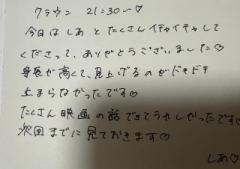 クラウン 21:30〜♡
今日はしあとたくさんイチャイチャして
くださって、ありがとうございました♡
身長が高くて、見上げるのがドキドキ
止まらなかったです♡
たくさん映画の話できてうれしかったです♡
次回までに見ておきます♡
しあ♡